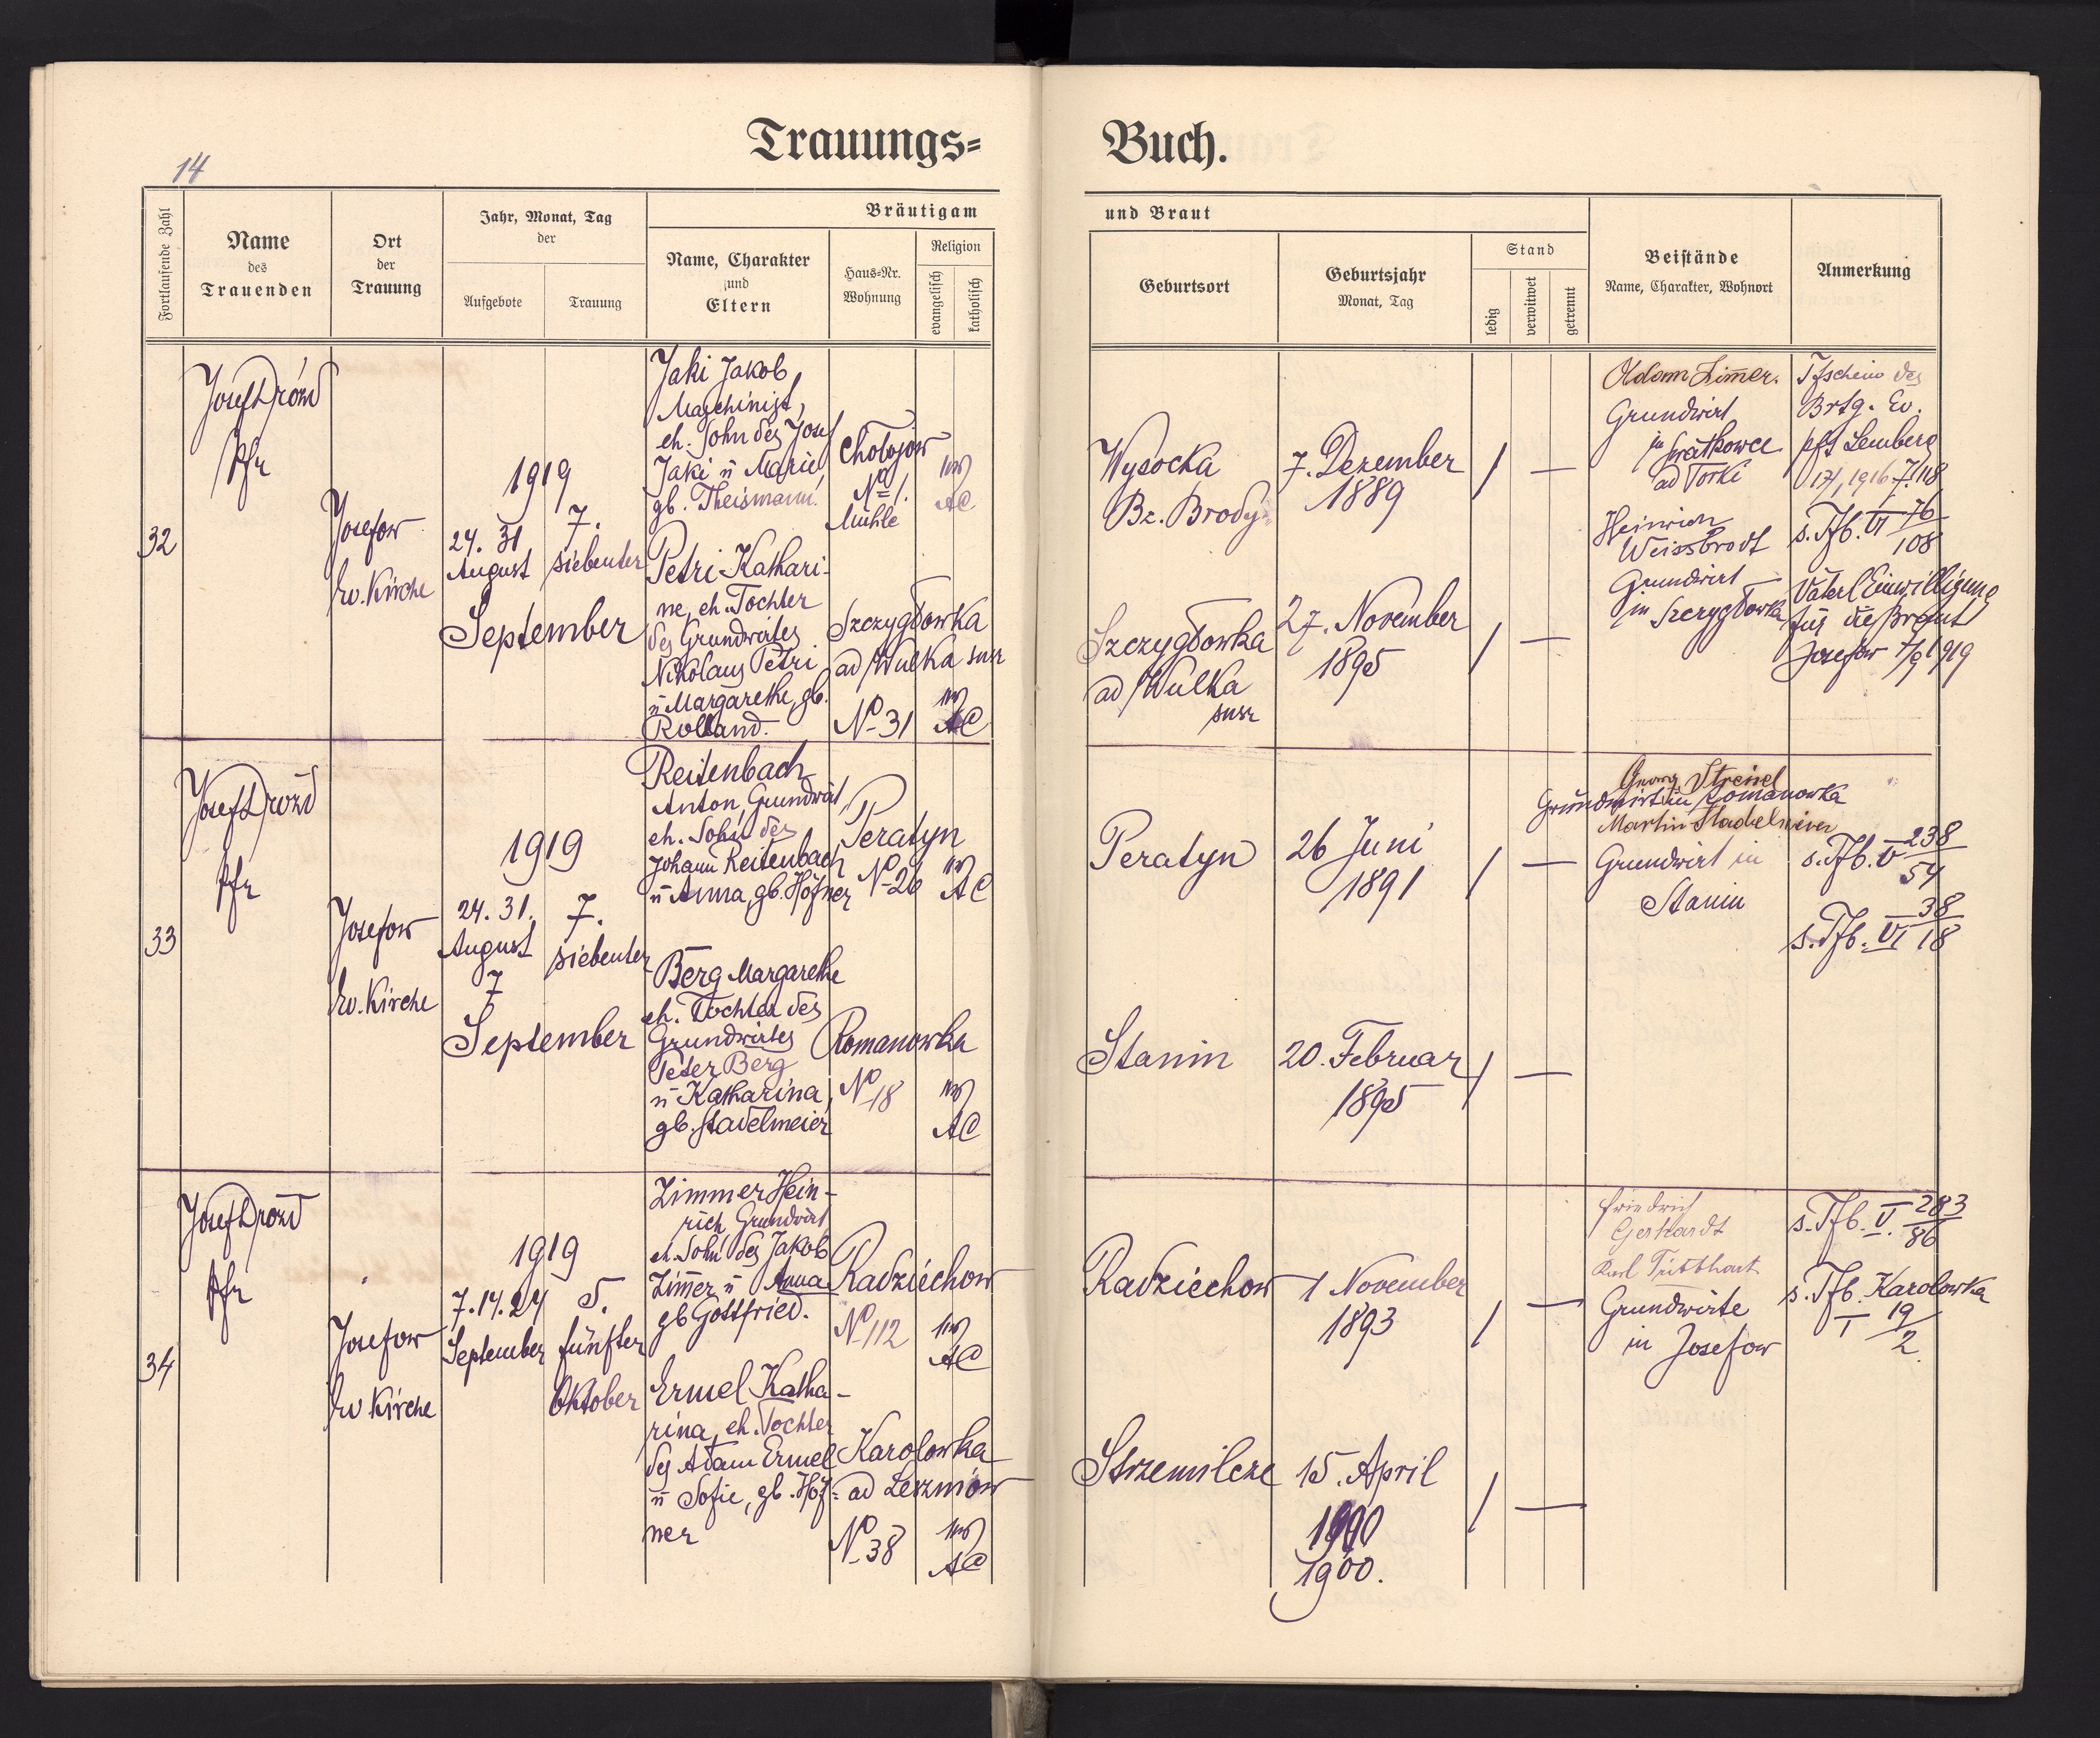 14
Trauungs=
Buch.
Fortlaufende Zahl
Name
des
Trauenden
Ort
der
Trauung
Jahr, Monat, Tag
der
Aufgebote
Trauung
Bräutigam
Name, Charakter
und
Eltern
Haus=Nr.
Wohnung
Religion
evangelisch
katholisch
und Braut
Geburtsort
Geburtsjahr
Monat, Tag
Stand
ledig
verwitwet
getrennt
Beistände
Name, Charakter, Wohnort
Anmerkung
32
Josef Drózd
Pfr
Josefow
Ev. Kirche
1919
24. 31
August
September
7.
siebenter
Jaki Jakob,
Maschinist,
eh. Sohn des Josef
Jaki u Marie,
gb. Theismann.
Chołojów
No 1.
Mühle
AC
Petri Kathari-
ne, eh. Tochter
des Grundwirtes
Nikolaus Petri
u Margarethe, gb.
Rolland.
Szczygłowka
ad Wulka susz
No 31
AC
Wysocka
Bz. Brody
7. Dezember
1889
Szczygłowka
ad Wulka
susz
27. November
1895
Adam Zimer.
Grundwirt
ad Torki
Heinrich
Weissbrodt
Grundwirt
in Szczygłowka
Tfschein des
Brtg. Ev.
Pft Lemberg
17/1, 1916
s. Tfb. VI 76
108
Väterl Einwilligung
für die Braut
Josefow 7/9 1919
33
Josef Drózd
Pfr
Josefow
Ev. Kirche
1919
24. 31.
August
7
September
7.
siebenter
Reitenbach
Anton, Grundwirt,
eh. Sohn des
Johann Reitenbach
u Anna, gb. Höfner
Peratyn
No 26
AC
Berg Margarethe
eh. Tochter des
Grundwirtes
Peter Berg
u Katharina,
gb. Stadelmeier
Romanowka
No 18
AC
Peratyn
26 Juni
1891
Stanin
20. Februar
1895
Georg
Grundwirt in Romanowka
Martin Stadelmeier
Grundwirt in
Stanin
s. Tfb. V 238
54
s. Tfb. VI 38
18
34
Josef Drózd
Pfr
Josefow
Ev Kirche
1919
7. 14. 21
September
5.
fünfter
Oktober
Zimmer Hein-
rich, Grundwirt
eh. Sohn des Jakob
Zimer u Anna
gb Gottfried.
Radziechow
No 112
AC
Ermel Katha-
rina, eh. Tochter
des Adam Ermel
u Sofie, gb. Höf-
ner
Karolowka
ad Leszniów
No 38
AC
Radziechow
1 November
1893
Strzemilcze
15. April
1900.
Friedrich
Gerhardt
Karl
Grundwirte
in Josefow
s. Tfb. V. 283
86
s. Tfb. Karolowka
I 19
2.